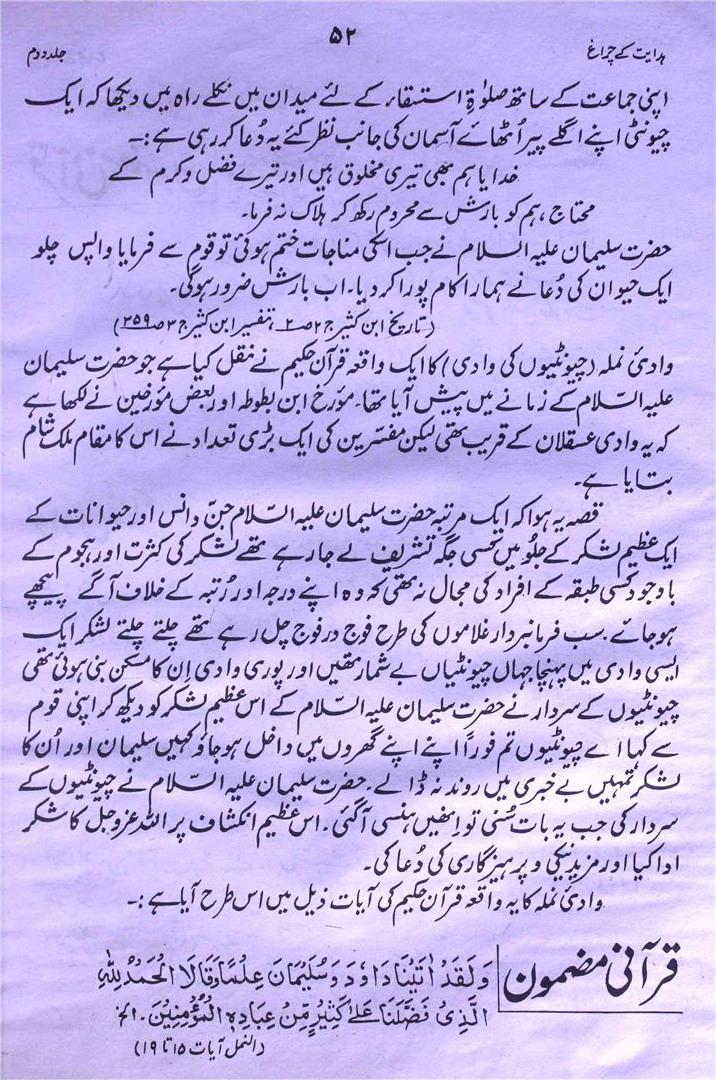 ہدایت کے چراغ
۵۲
جلد دوم
اپنی جماعت کے ساتھ صلوٰۃ استسقاء کے لئے میدان میں نکلے راہ میں دیکھا کہ ایک
چیونٹی اپنے اگلے پیر اُٹھائے آسمان کی جانب نظر کئے یہ دُعا کر رہی ہے :۔
خدایا ہم بھی تیری مخلوق ہیں اور تیرے فضل و کرم کے
محتاج ، ہم کو بارش سے محروم رکھ کر ہلاک نہ فرما۔
حضرت سلیمان علیہ السلام نے جب اسکی مناجات ختم ہوئی تو قوم سے فرمایا واپس چلو
ایک حیوان کی دُعا نے ہمارا کام پورا کر دیا۔ اب بارش ضرور ہوگی۔
(تاریخ ابن کثیر ج ۲ ص ۲، تفسیر ابن کثیر ج ۳ ص ۳۵۹)
وادئ نملہ (چیونٹیوں کی وادی) کا ایک واقعہ قرآن حکیم نے نقل کیا ہے جو حضرت سلیمان
علیہ السّلام کے زمانے میں پیش آیا تھا۔ مؤرخ ابن بطوطہ اور بعض مؤرخین نے لکھا ہے
کہ یہ وادی عسقلان کے قریب تھی لیکن مفسّرین کی ایک بڑی تعداد نے اس کا مقام ملک شام
بتایا ہے۔
قصہ یہ ہوا کہ ایک مرتبہ حضرت سلیمان علیہ السّلام جنّ و انس اور حیوانات کے
ایک عظیم لشکر کے جلو میں کسی جگہ تشریف لے جا رہے تھے لشکر کی کثرت اور ہجوم کے
باوجود کسی طبقہ کے افراد کی مجال نہ تھی کہ وہ اپنے درجہ اور رُتبہ کے خلاف آگے پیچھے
ہو جائے۔ سب فرمانبردار غلاموں کی طرح فوج در فوج چل رہے تھے چلتے چلتے لشکر ایک
ایسی وادی میں پہنچا جہاں چیونٹیاں بے شمار تھیں اور پوری وادی اِن کا مسکن بنی ہوئی تھی
چیونٹیوں کے سردار نے حضرت سلیمان علیہ السّلام کے اس عظیم لشکر کو دیکھ کر اپنی قوم
سے کہا اے چیونٹیوں تم فوراً اپنے اپنے گھروں میں داخل ہو جاؤ کہیں سلیمان اور اُن کا
لشکر تمہیں بے خبری میں روند نہ ڈالے۔ حضرت سلیمان علیہ السّلام نے چیونٹیوں کے
سردار کی جب یہ بات سُنی تو انھیں ہنسی آگئی۔ اس عظیم انکشاف پر اللہ عزوجل کا شکر
ادا کیا اور مزید نیکی و پرہیزگاری کی دُعا کی۔
وادئ نملہ کا یہ واقعہ قرآن حکیم کی آیات ذیل میں اس طرح آیا ہے :۔
قرآنی مضمون
وَلَقَدْ اٰتَيْنَا دَاوٗدَ وَسُلَيْمَانَ عِلْمًا وَقَالَا الْحَمْدُ لِلّٰهِ
الَّذِيْ فَضَّلَنَا عَلٰى كَثِيْرٍ مِّنْ عِبَادِهِ الْمُؤْمِنِيْنَ۔ الخ
(النمل آیات ۱۵ تا ۱۹)